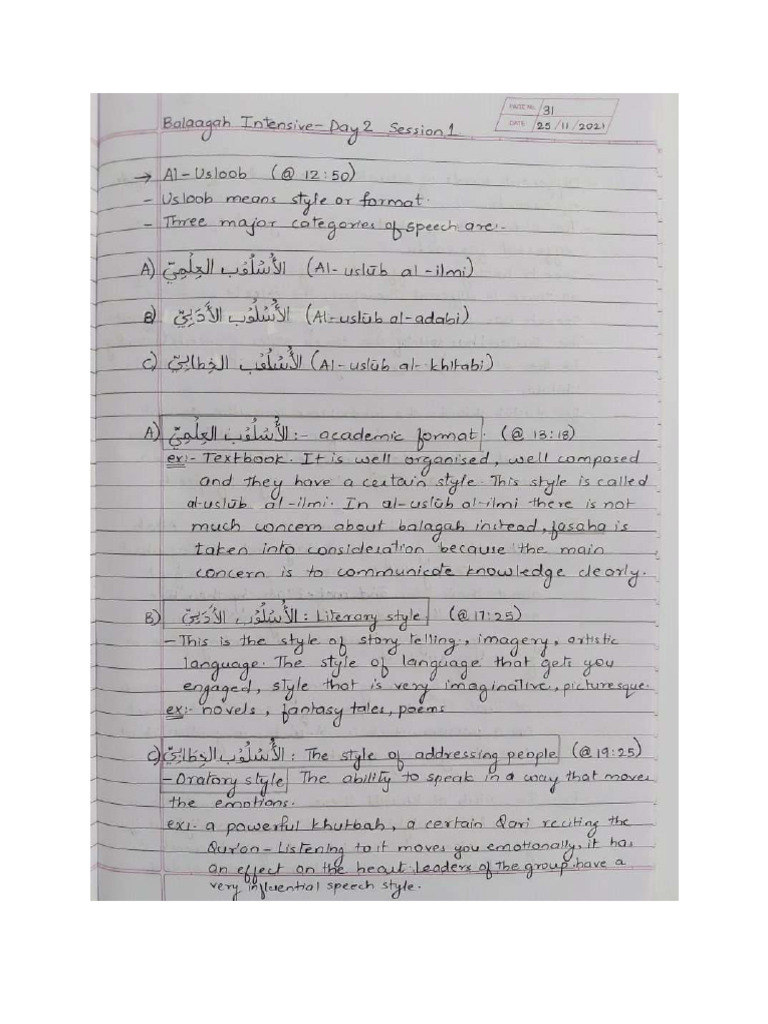 PAGE No. 31
DATE: 25/11/2021
Balaagah Intensive - Day 2 Session 1
→ Al-Usloob (@ 12:50)
- Usloob means style or format.
- Three major categories of speech are:-
A) الأُسْلُوْب العِلْمِيّ (Al-uslūb al-ilmi)
B) الأُسْلُوْب الأَدَبِيّ (Al-uslūb al-adabi)
C) الأُسْلُوْب الخِطابِيّ (Al-uslūb al-khitabi)
A) الأُسْلُوْب العِلْمِيّ :- academic format. (@ 13:18)
ex:- Textbook. It is well organised, well composed
and they have a certain style. This style is called
al-uslūb al-ilmi. In al-uslūb al-ilmi there is not
much concern about balagah instead, fasaha is
taken into consideration because the main
concern is to communicate knowledge clearly.
B) الأُسْلُوْب الأَدَبِيّ : Literary style (@ 17:25)
- This is the style of story telling, imagery, artistic
language. The style of language that gets you
engaged, style that is very imaginative, picturesque.
ex:- novels, fantasy tales, poems
C) الأُسْلُوْب الخِطَابِيّ : The style of addressing people (@ 19:25)
- Oratory style The ability to speak in a way that moves
the emotions.
ex:- a powerful khutbah, a certain Qari reciting the
Qur'an - Listening to it moves you emotionally, it has
an effect on the heart. Leaders of the group have a
very influential speech style.